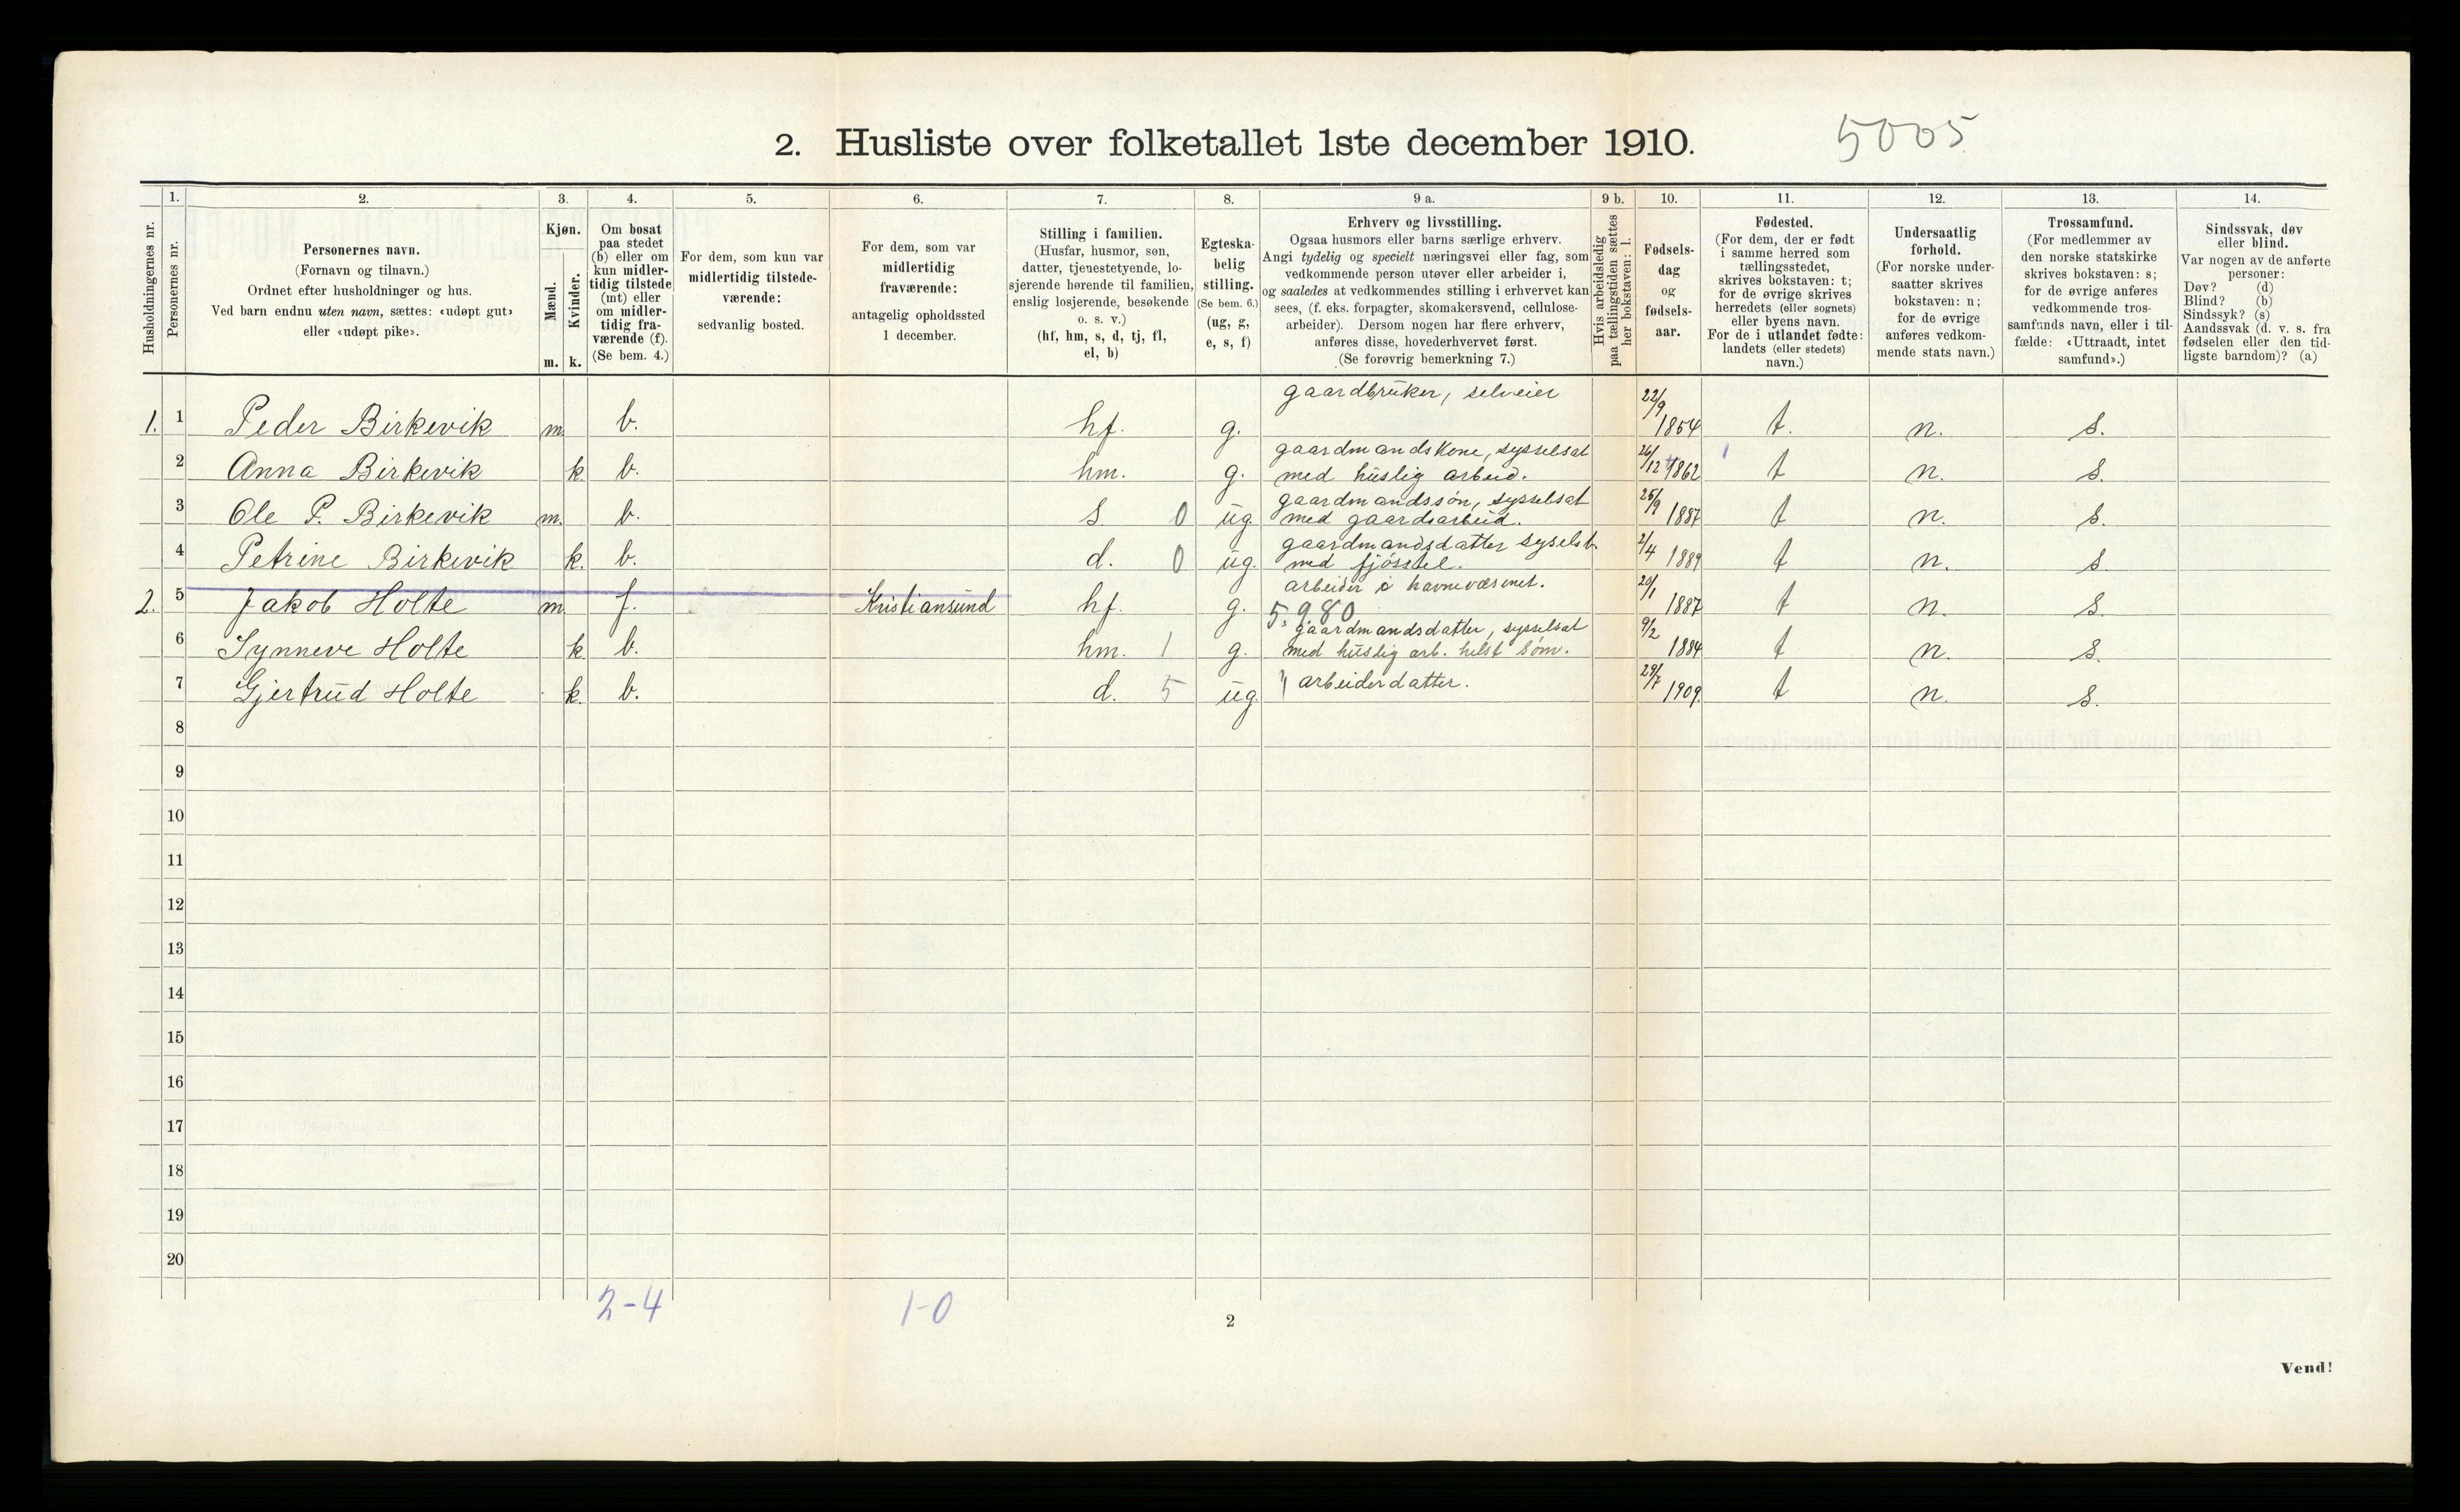 2. Husliste over folketallet 1ste december 1910.
5005
1. 2. 3. 4. 5. 6. 7. 8. 9 a. 9 b. 10. 11. 12. 13. 14.
Husholdningernes nr.
Personernes nr.
Personernes navn.
(Fornavn og tilnavn.)
Ordnet efter husholdninger og hus.
Ved barn endnu uten navn, sættes: «udøpt gut»
eller «udøpt pike».
Kjøn.
Mænd.
Kvinder.
m. k.
Om bosat
paa stedet
(b) eller om
kun midler-
tidig tilstede
(mt) eller
om midler-
tidig fra-
værende (f).
(Se bem. 4.)
For dem, som kun var
midlertidig tilstede-
værende:
sedvanlig bosted.
For dem, som var
midlertidig
fraværende:
antagelig opholdssted
1 december.
Stilling i familien.
(Husfar, husmor, søn,
datter, tjenestetyende, lo-
sjerende hørende til familien,
enslig losjerende, besøkende
o. s. v.)
(hf, hm, s, d, tj, fl,
el, b)
Egteska-
belig
stilling.
(Se bem. 6.)
(ug, g,
e, s, f)
Erhverv og livsstilling.
Ogsaa husmors eller barns særlige erhverv.
Angi tydelig og specielt næringsvei eller fag, som
vedkommende person utøver eller arbeider i,
og saaledes at vedkommendes stilling i erhvervet kan
sees, (f. eks. forpagter, skomakersvend, cellulose-
arbeider). Dersom nogen har flere erhverv,
anføres disse, hovederhvervet først.
(Se forøvrig bemerkning 7.)
Hvis arbeidsledig
paa tællingstiden sættes
her bokstaven: l.
Fødsels-
dag
og
fødsels-
aar.
Fødested.
(For dem, der er født
i samme herred som
tællingsstedet,
skrives bokstaven: t;
for de øvrige skrives
herredets (eller sognets)
eller byens navn.
For de i utlandet fødte:
landets (eller stedets)
navn.)
Undersaatlig
forhold.
(For norske under-
saatter skrives
bokstaven: n;
for de øvrige
anføres vedkom-
mende stats navn.)
Trossamfund.
(For medlemmer av
den norske statskirke
skrives bokstaven: s;
for de øvrige anføres
vedkommende tros-
samfunds navn, eller i til-
fælde: «Uttraadt, intet
samfund».)
Sindssvak, døv
eller blind.
Var nogen av de anførte
personer:
Døv? (d)
Blind? (b)
Sindssyk? (s)
Aandssvak (d. v. s. fra
fødselen eller den tid-
ligste barndom)? (a)
gaardbruker, selveier
1. 1 Peder Birkevik m. b. hf. g. 22/9 1854 t. n. s.
gaardmandskone, sysselsat
2 Anna Birkevik k. b. hm. g. med huslig arbeid. 26/12 1862 t n. s.
gaardmandssøn, sysselsat
3 Ole P. Birkevik m. b. s 0 ug. med gaardsarbeid. 25/9 1887 t n. s.
gaardmandsdatter syselst.
4 Petrine Birkevik k. b. d. 0 ug. med fjøsstel. 2/4 1889 t n. s.
arbeider i havnevæsenet.
2. 5 Jakob Holte m f. Kristiansund hf. g. 5.980 20/1 1887 t n. s.
gaardmandsdatter, sysselsat
6 Synneve Holte k b. hm. 1 g. med huslig arb. helst søm. 9/2 1884 t n. s.
7 Gjertrud Holte k. b. d. 5 ug. " arbeiderdatter. 29/7 1909. t n. s.
8
9
10
11
12
13
14
15
16
17
18
19
20
2-4 1-0
2
Vend!